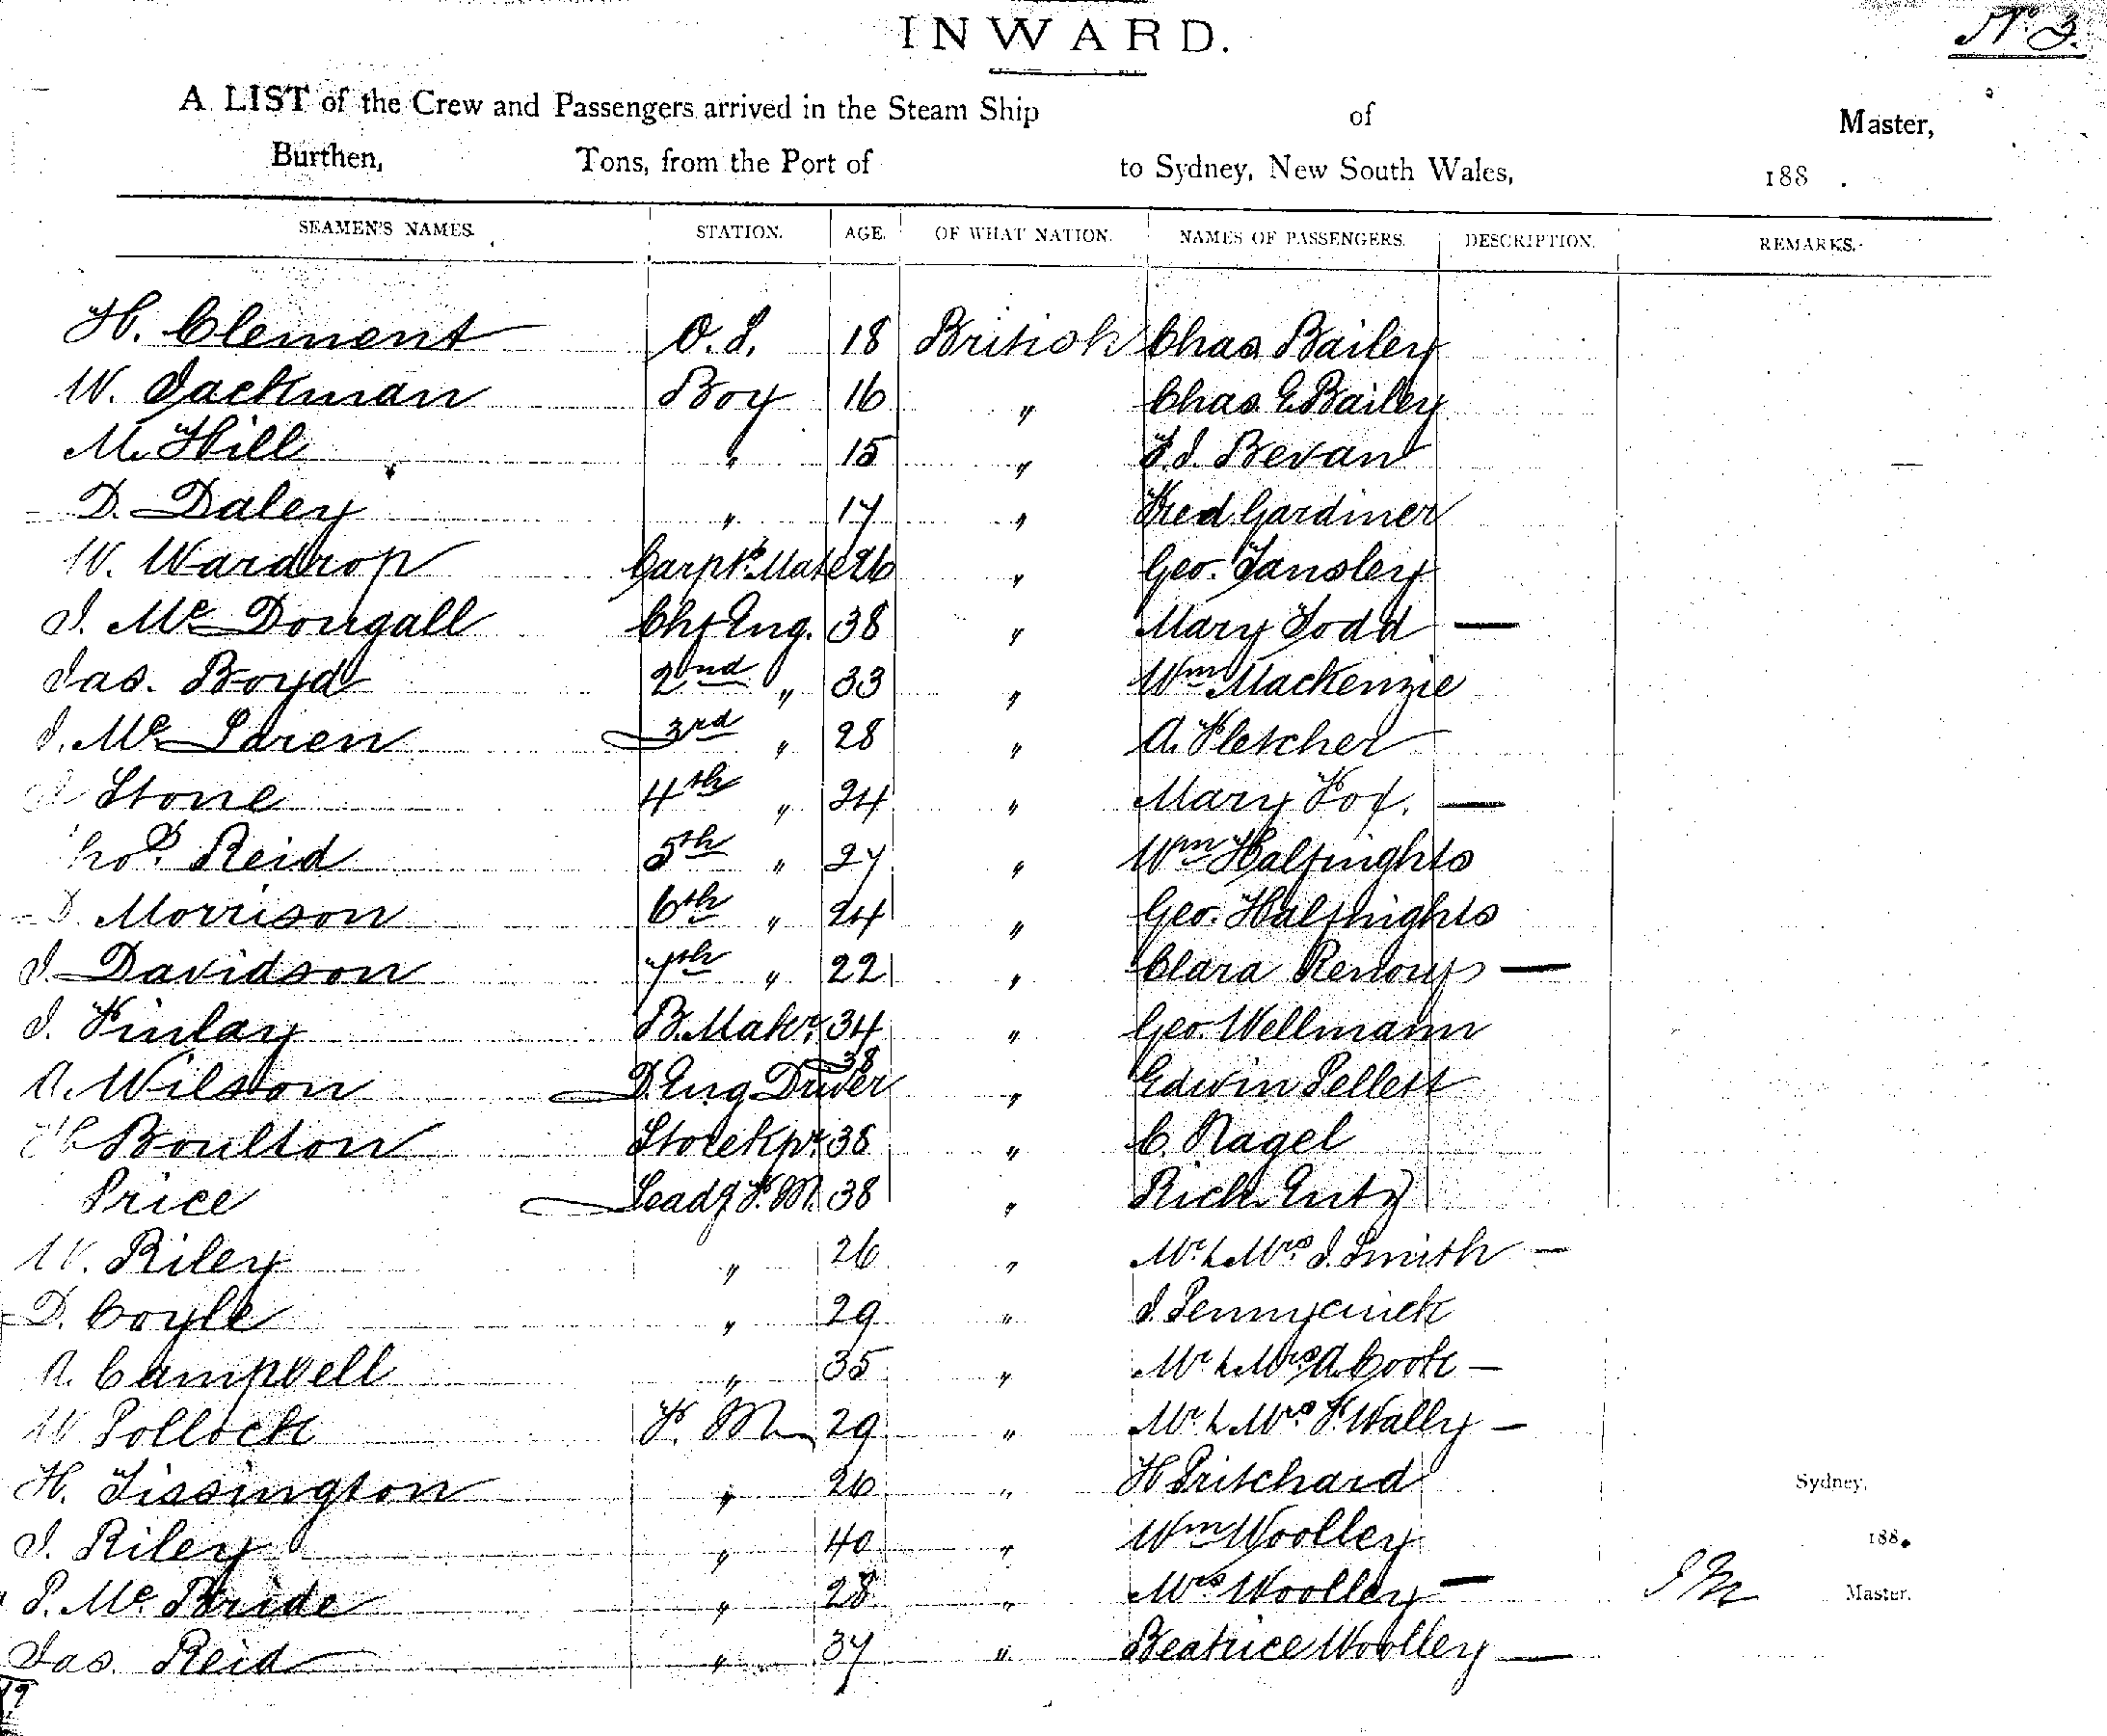 No. 3.
INWARD.
A LIST of the Crew and Passengers arrived in the Steam Ship of Master,
Burthen, Tons, from the Port of to Sydney, New South Wales, 188 .
SEAMEN'S NAMES. STATION. AGE. OF WHAT NATION. NAMES OF PASSENGERS. DESCRIPTION. REMARKS.
H. Clement O.S. 18 British Chas Bailey
W. Jackman Boy 16 " Chas E Bailey
M. Hill " 15 " Bevan
D. Daley " 17 " Fred Gardiner
W. Wardrop Carptrs Mate 26 " Geo. Tansley
J. Mc Dougall Chf Eng. 38 " Mary Todd —
Jas. Boyd 2nd " 33 " Wm Mackenzie
J. Mc Laren 3rd " 28 " A. Fletcher
Stone 4th " 24 " Mary Fox. —
Thos. Reid 5th " 27 " Wm Halfnights
D. Morrison 6th " 24 " Geo. Halfnights
J. Davidson 7th " 22 " Clara Renouf —
J. Finlay B. Makr. 34 " Geo. Wellmann
A. Wilson D. Eng Driver 38 " Edwin Pellett
Boulton Storekpr. 38 " C. Nagel
Price Leadg F.M. 38 " Rich Entz
W. Riley " 26 " Mr. & Mrs J. Smith —
D. Coyle " 29 " J. Pennycuick
A. Campbell " 35 " Mr & Mrs A. Cook —
W Pollock F. M 29 " Mr. & Mrs F. Wally —
H. Tissington " 26 " H Pritchard
Sydney,
J. Riley " 40 " Wm Woolley
188 .
P. Mc Bride " 28 " Mrs Woolley —
Master.
Jas. Reid " 37 " Beatrice Woolley —